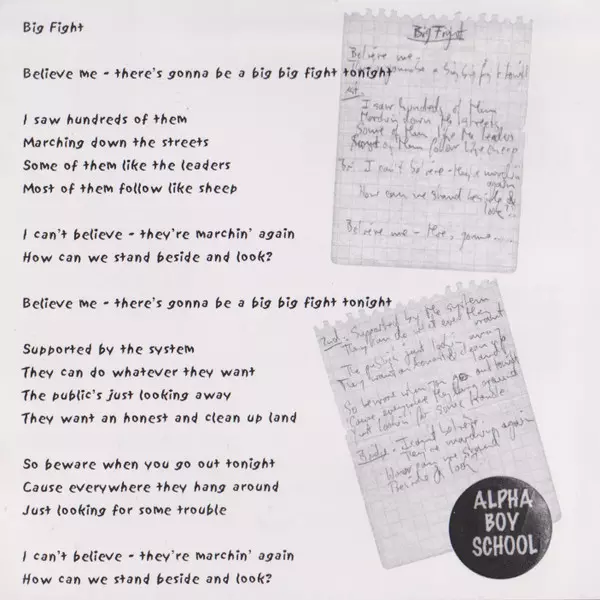 Big Fight
Believe me - there's gonna be a big big fight tonight
I saw hundreds of them
Marching down the streets
Some of them like the leaders
Most of them follow like sheep
I can't believe - they're marchin' again
How can we stand beside and look?
Believe me - there's gonna be a big big fight tonight
Supported by the system
They can do whatever they want
The public's just looking away
They want an honest and clean up land
So beware when you go out tonight
Cause everywhere they hang around
Just looking for some trouble
I can't believe - they're marchin' again
How can we stand beside and look?
Big Fight
Believe me
big big fight tonight
I saw hundreds of them
Marchin down the streets
Some of them like the leaders
of them follow like sheep
I can't believe - they're marchin
again
How can we stand beside &
look?
Believe me - there, gonna......
2nd. Supported by the system
They can do what ever they
want
The public just lookin away
They want an honest & clean up
land
So beware when you go out tonight
'Cause everywhere they hang around
lookin' for some trouble
Bridge - I can't believe
They're marching again
How can we stand
beside & look
ALPHA
BOY
SCHOOL